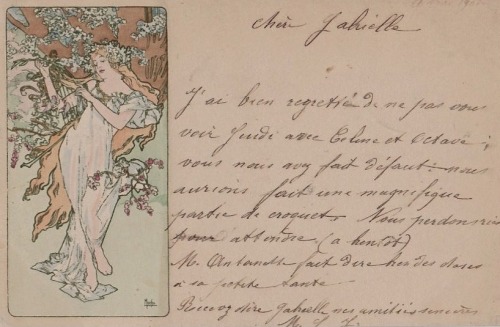 Chère Gabrielle
J'ai bien regretté de ne pas vous
voir Jeudi avec Céline et Octave ;
vous nous avez fait défaut : nous
aurions fait une magnifique
partie de croquet. Nous perdons rien
pour attendre (a bientot)
M. Antoinette fait dire bien des choses
à sa petite tante
Recevez chère Gabrielle nos amitiés sincères